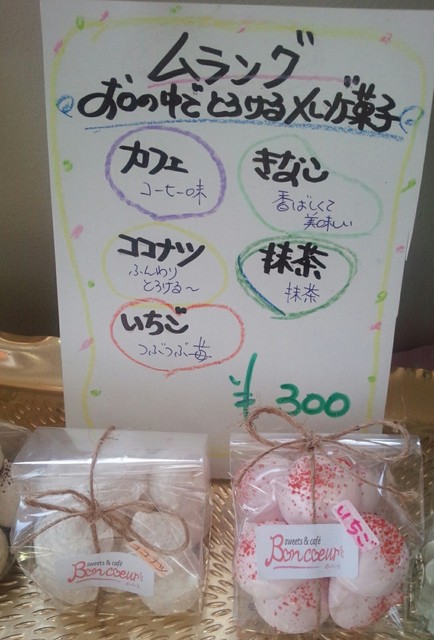 ムラング
お口の中でとろけるメレンゲ菓子
カフェ
コーヒー味
きなこ
香ばしくて
美味しい
ココナツ
ふんわり
とろける〜
抹茶
抹茶
いちご
つぶつぶ苺
¥300
ココナツ
sweets & café
Boncoeur
いちご
sweets & café
Boncoeur